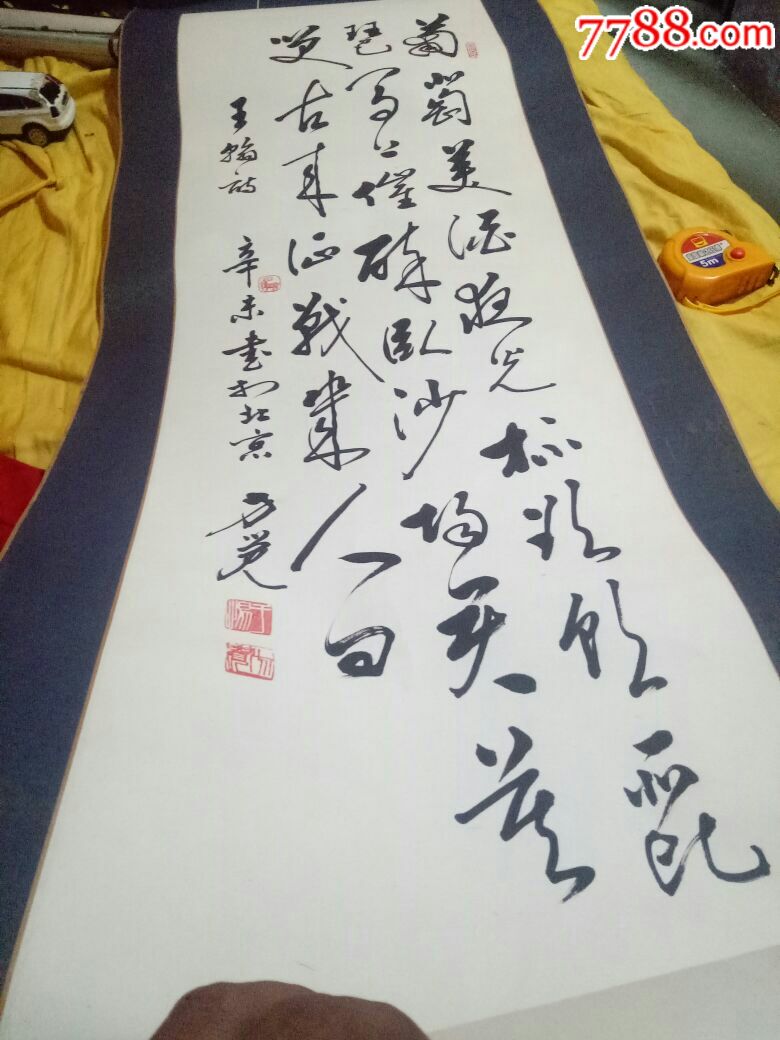 7788.com
葡萄美酒夜光杯欲飲琵
琶馬上催醉臥沙場君莫
笑古来征戰幾人回
王翰詩 辛未書於北京
5m